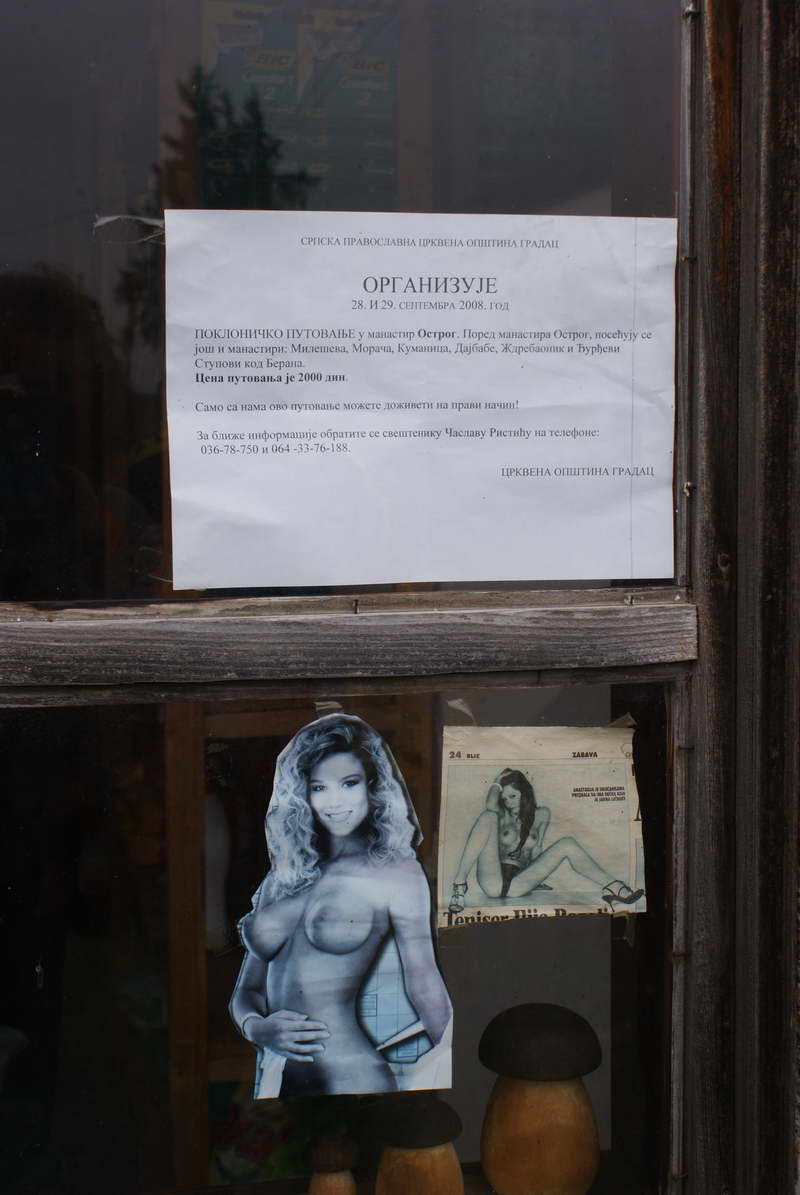 BIC
BIC
СРПСКА ПРАВОСЛАВНА ЦРКВЕНА ОПШТИНА ГРАДАЦ
ОРГАНИЗУЈЕ
28. И 29. СЕПТЕМБРА 2008. ГОД
ПОКЛОНИЧКО ПУТОВАЊЕ у манастир Острог. Поред манастира Острог, посећују се
још и манастири: Милешева, Морача, Куманица, Дајбабе, Ждребаоник и Ђурђеви
Ступови код Берана.
Цена путовања је 2000 дин.
Само са нама ово путовање можете доживети на прави начин!
За ближе информације обратите се свештенику Чаславу Ристићу на телефоне:
036-78-750 и 064 -33-76-188.
ЦРКВЕНА ОПШТИНА ГРАДАЦ
24 BLIC ZABAVA
Teniser Ilija